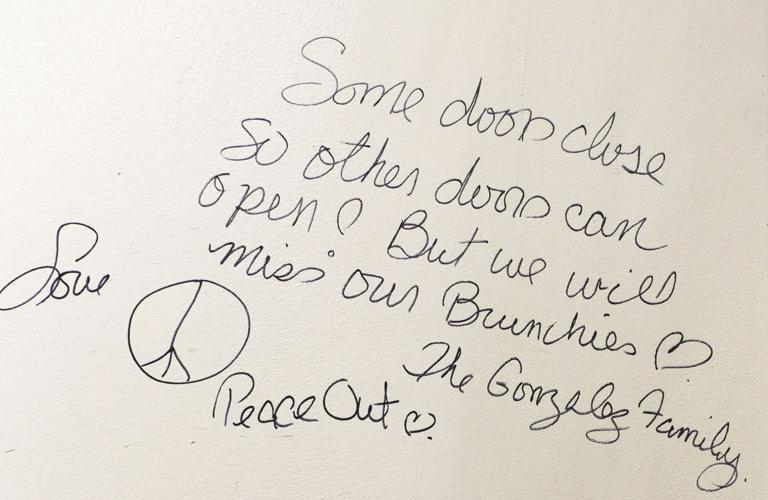 Some doors close
So other doors can
open! But we will
miss our Brunchies ♡
The Gonzalez Family.
Love
Peace Out ♡.